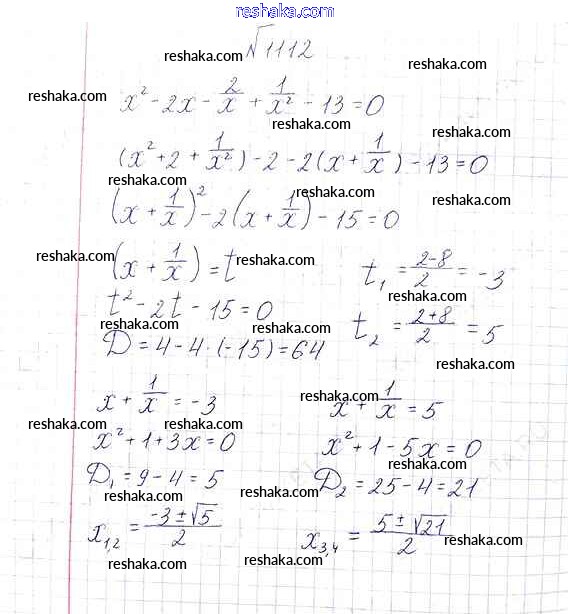 reshaka.com
√1112
reshaka.com reshaka.com
x² - 2x - 2/x + 1/x² - 13 = 0
reshaka.com
reshaka.com
reshaka.com
(x² + 2 + 1/x²) - 2 - 2(x + 1/x) - 13 = 0
reshaka.com
reshaka.com
reshaka.com
(x + 1/x)² - 2(x + 1/x) - 15 = 0
reshaka.com
(x + 1/x) = t
t₁ = (2-8)/2 = -3
reshaka.com
reshaka.com
t² - 2t - 15 = 0
t₂ = (2+8)/2 = 5
reshaka.com
reshaka.com
reshaka.com
D = 4 - 4·(-15) = 64
reshaka.com
x + 1/x = -3
x + 1/x = 5
reshaka.com
reshaka.com
reshaka.com
x² + 1 + 3x = 0
x² + 1 - 5x = 0
reshaka.com
D₁ = 9 - 4 = 5
D₂ = 25 - 4 = 21
reshaka.com
reshaka.com
x₁,₂ = (-3 ± √5)/2
x₃,₄ = (5 ± √21)/2
reshaka.com
reshaka.com
reshaka.com